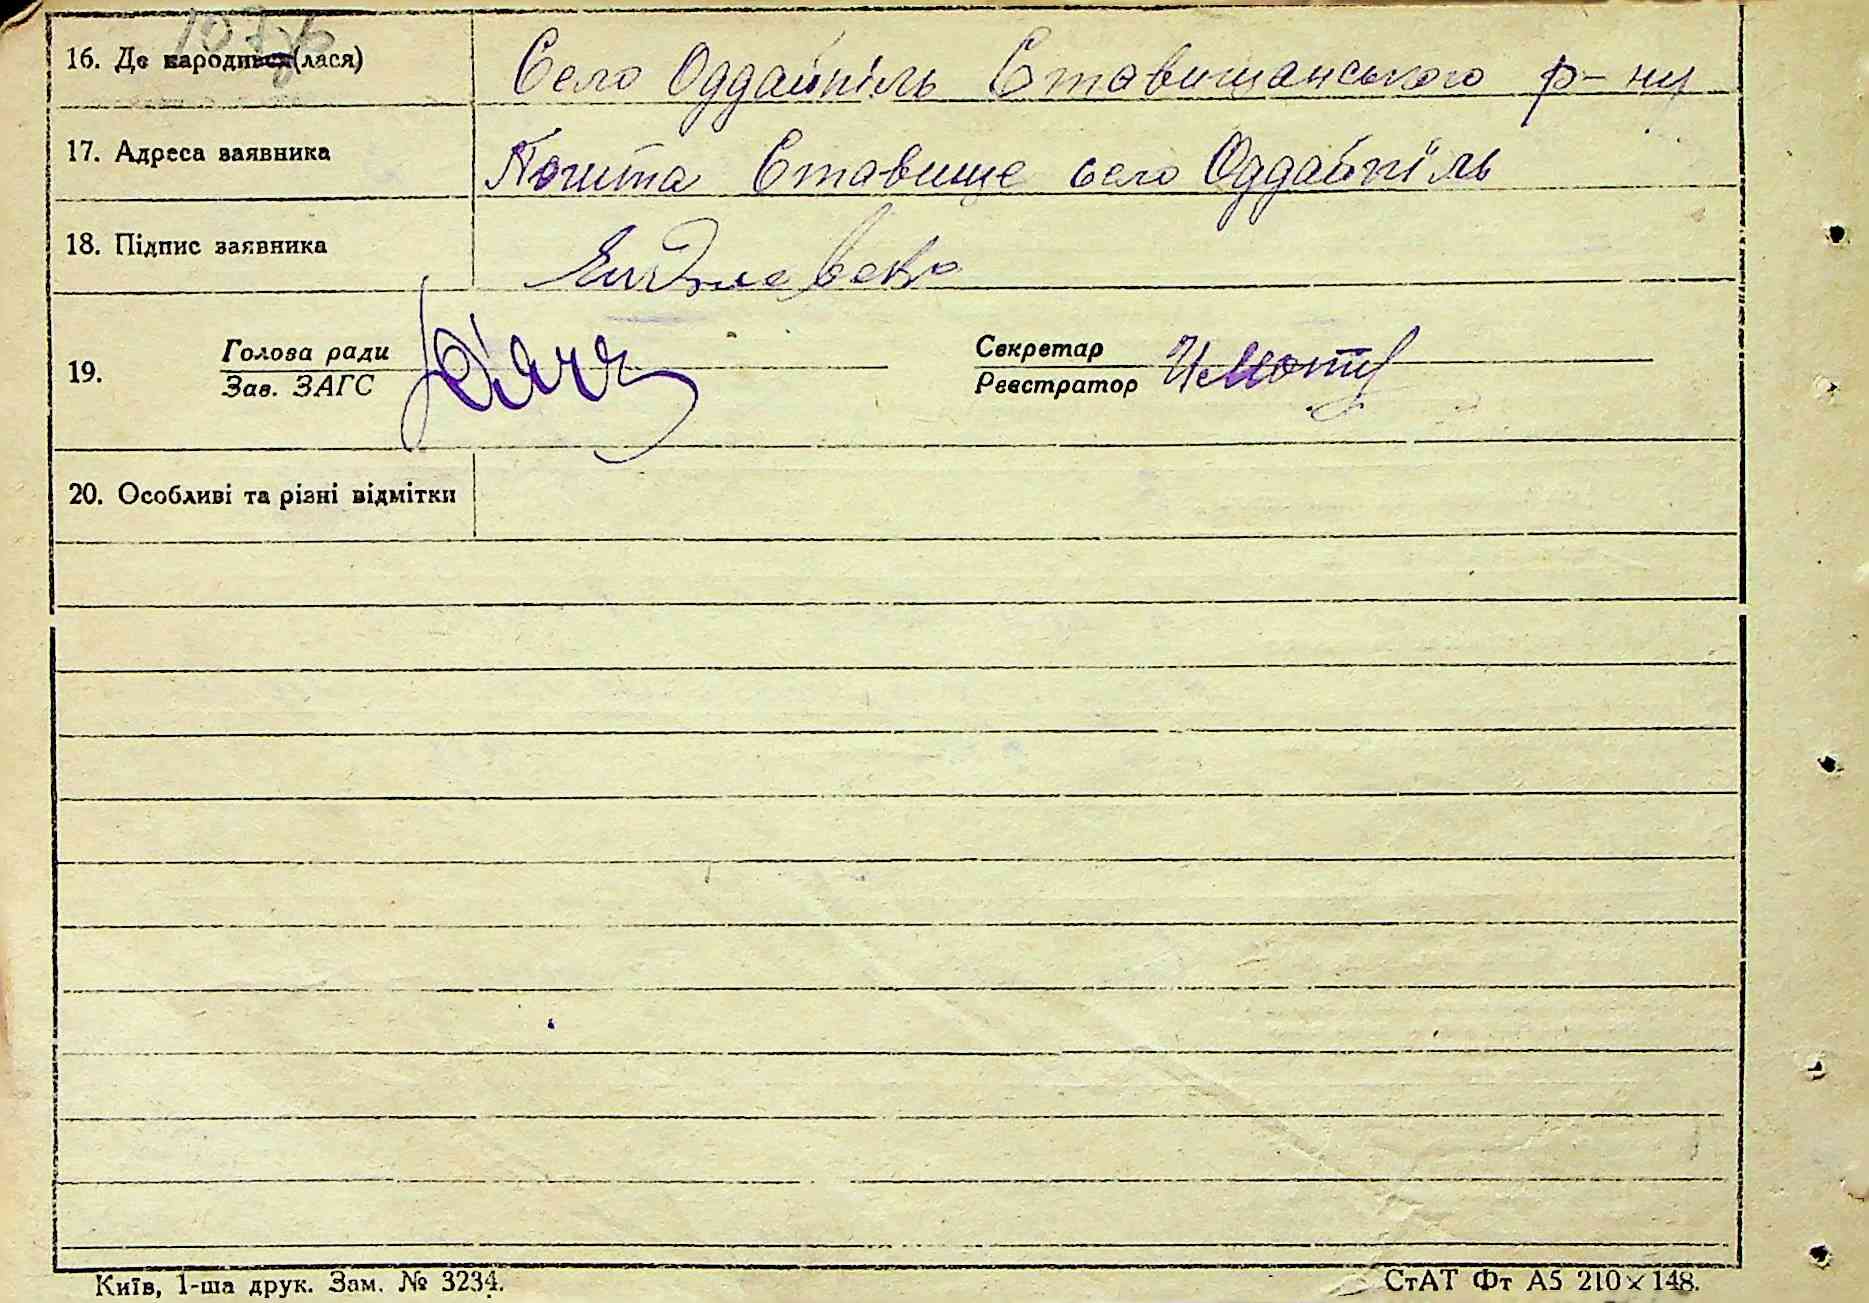 16. Де народився(лася) Село Оддайпіль Ставищанського р-ну
17. Адреса заявника Пошта Ставище село Оддайпіль
18. Підпис заявника
19. Голова ради Секретар
Зав. ЗАГС Реєстратор
20. Особливі та різні відмітки
Київ, 1-ша друк. Зам. № 3234. СтАТ Фт А5 210×148.